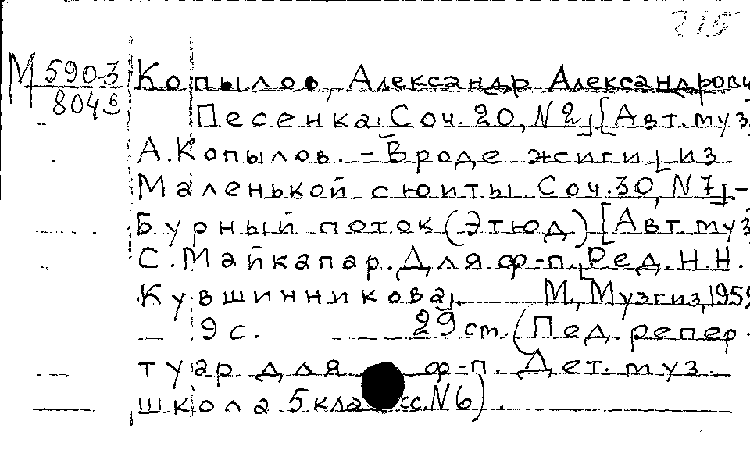 215
М 590-3 Копылов, Александр Александрови
804з Песенка. Соч. 20, N2,] [Авт. муз
А. Копылов. - Вроде жиги [, из
Маленькой сюиты. Соч. 30, N7], -
Бурный поток (Этюд) [Авт. муз
С. Майкапар. Для ф-п. Ред. Н.Н.
Кувшинникова. М., Музгиз, 195
9 с. 29 см. (Пед. репер
туар для ф-п. Дет. муз.
школа 5 класс. N6).